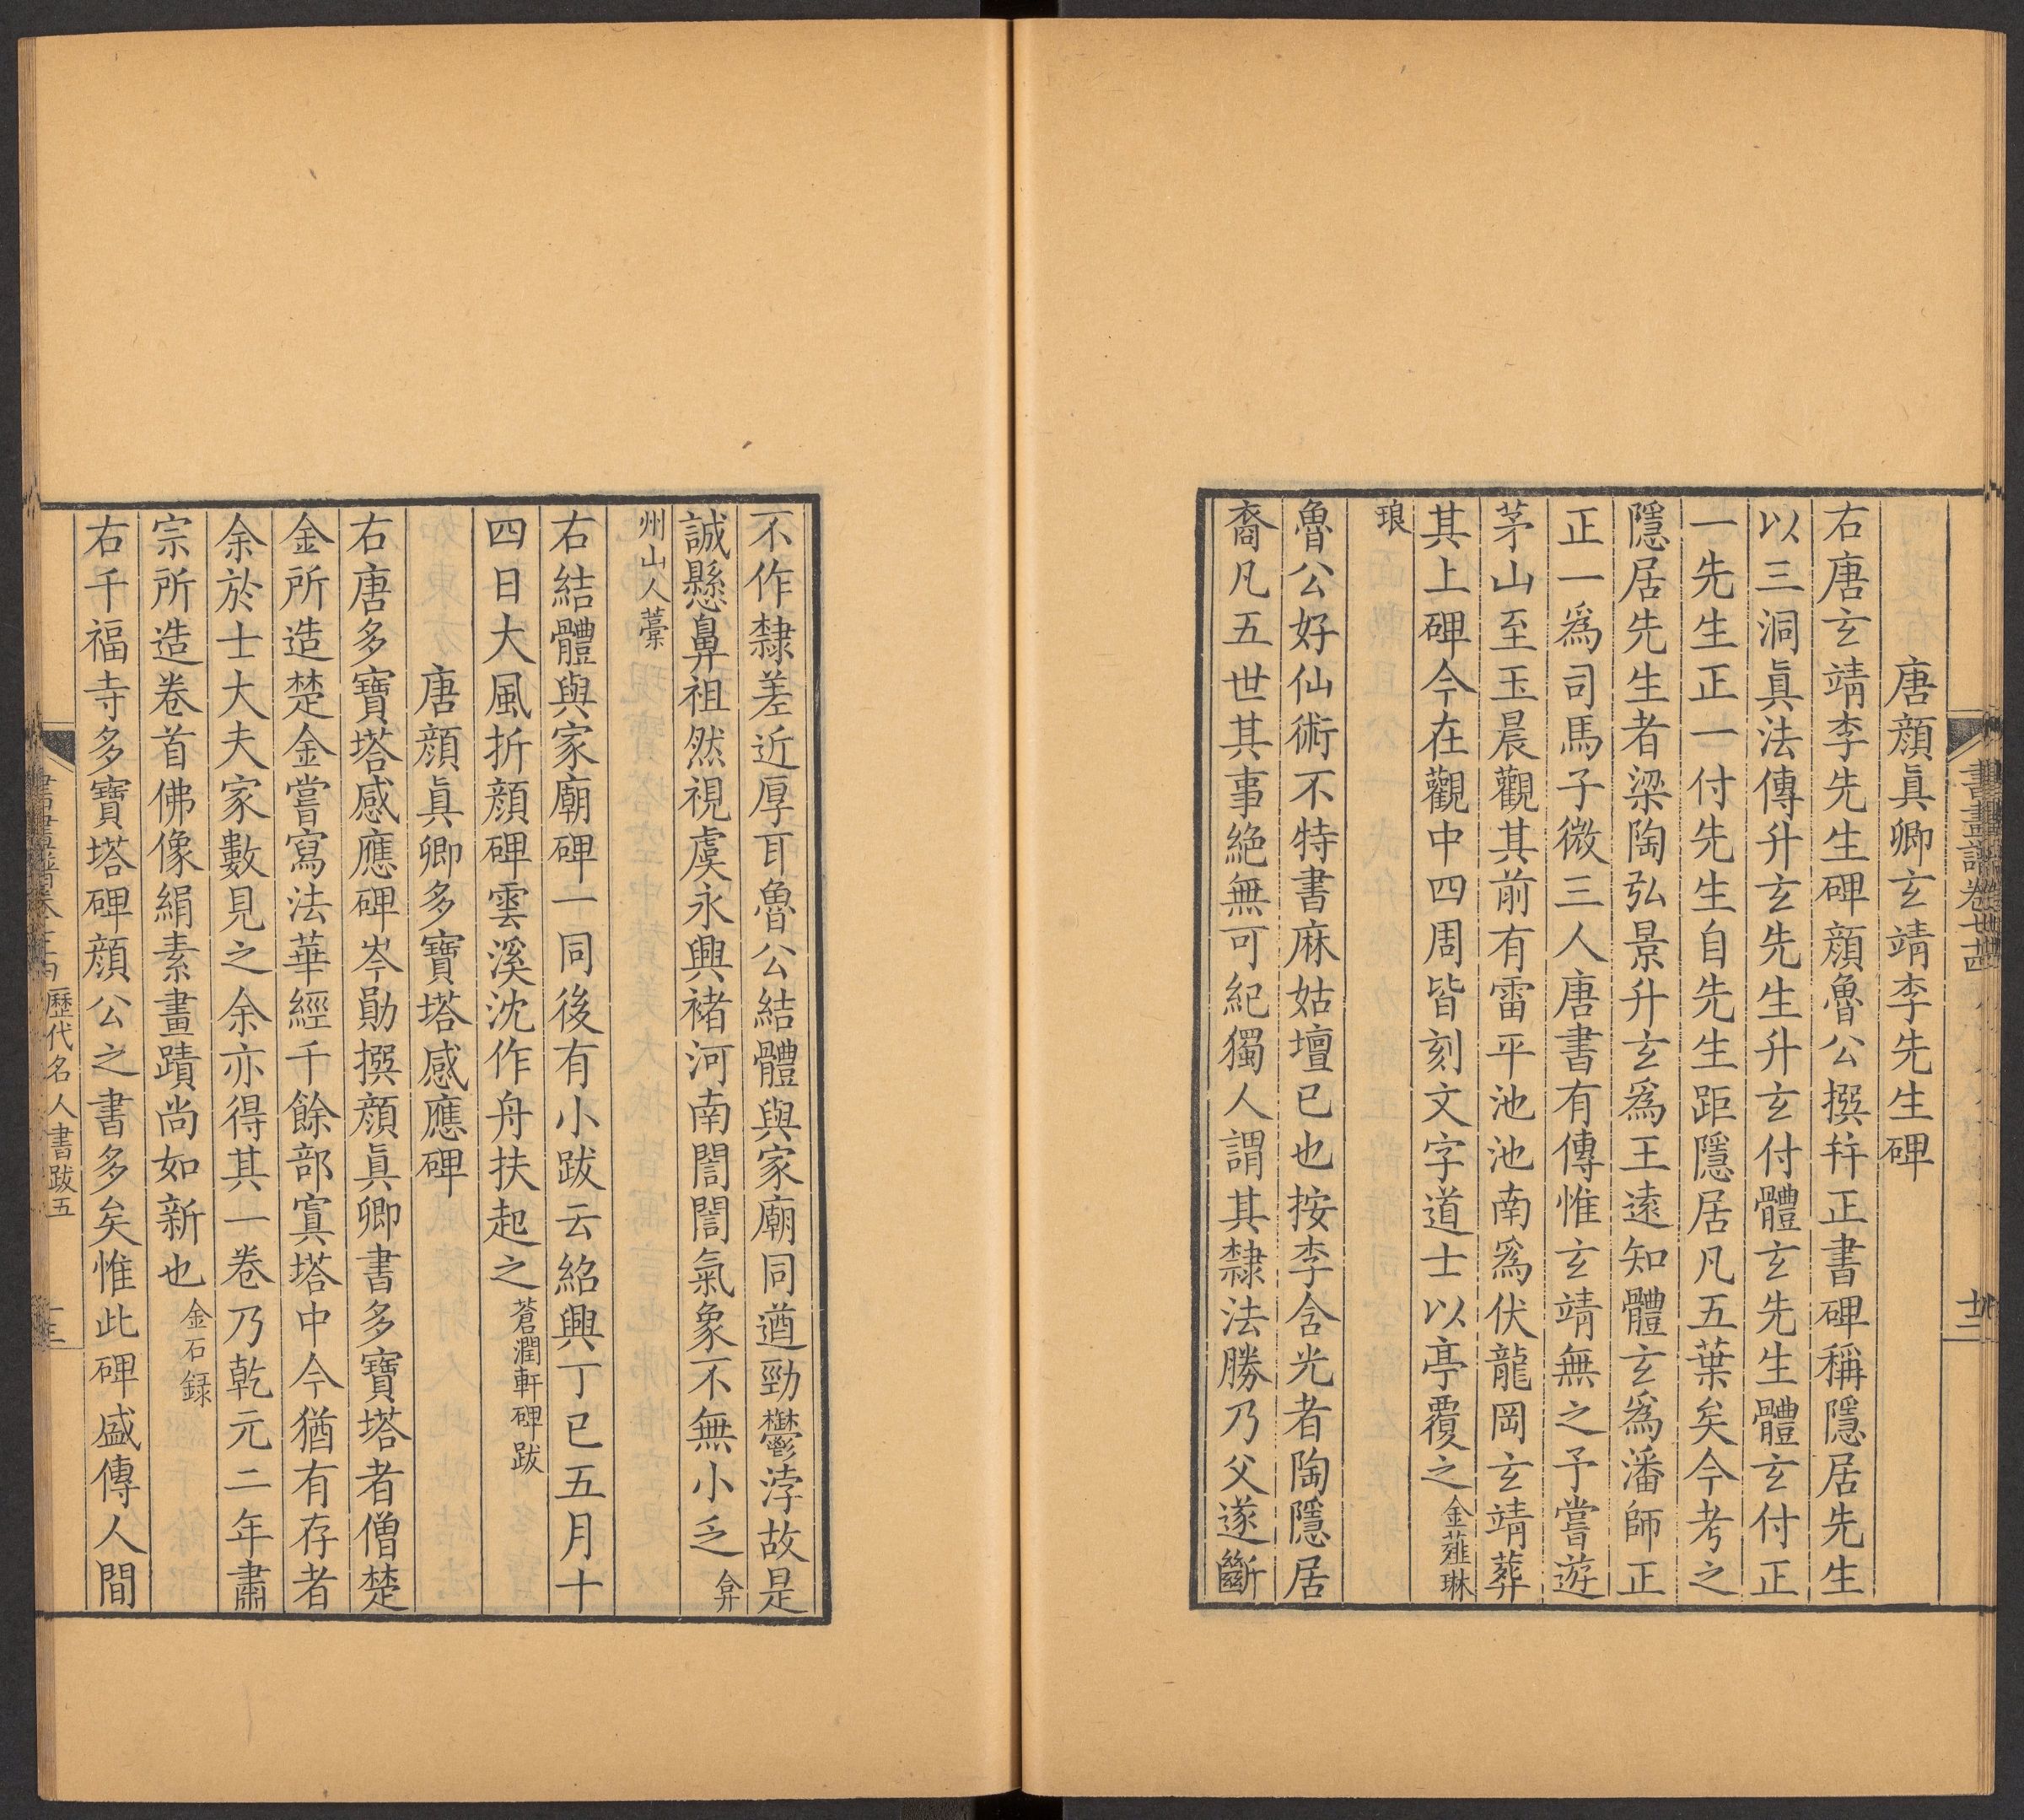 唐顔眞卿玄靖李先生碑
右唐玄靖李先生碑顔魯公撰幷正書碑稱隱居先生
以三洞眞法傳升玄先生升玄付體玄先生體玄付正
一先生正一付先生自先生距隱居凡五葉矣今考之
隱居先生者梁陶弘景升玄爲王遠知體玄爲潘師正
正一爲司馬子微三人唐書有傳惟玄靖無之予嘗遊
茅山至玉晨觀其前有雷平池池南爲伏龍岡玄靖葬
其上碑今在觀中四周皆刻文字道士以亭覆之金薤琳
琅
魯公好仙術不特書麻姑壇已也按李含光者陶隱居
裔凡五世其事絶無可紀獨人謂其隸法勝乃父遂斷
不作隸差近厚耳魯公結體與家廟同遒勁鬱浡故是
誠懸鼻祖然視虞永興褚河南誾誾氣象不無小乏弇
州山人藁
右結體與家廟碑一同後有小跋云紹興丁巳五月十
四日大風折顔碑雲溪沈作舟扶起之蒼潤軒碑跋
唐顔眞卿多寶塔感應碑
右唐多寶塔感應碑岑勛撰顔眞卿書多寶塔者僧楚
金所造楚金嘗寫法華經千餘部寘塔中今猶有存者
余於士大夫家數見之余亦得其一卷乃乾元二年肅
宗所造卷首佛像絹素畫蹟尚如新也金石録
右千福寺多寶塔碑顔公之書多矣惟此碑盛傳人間
歷代名人書跋五